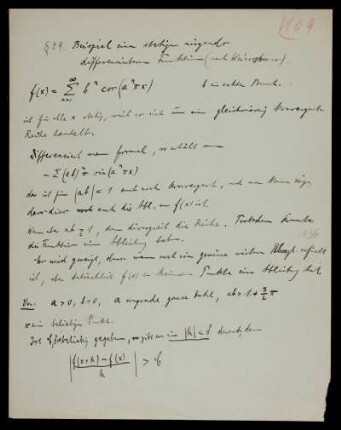 104
§ 29. Beispiel einer stetigen nirgends
differenzierbaren Funktion (nach Weierstrass)
f(x) = Σ bⁿ cos(aⁿπx) b ein echter Bruch.
ist für alle x stetig, weil es sich um eine gleichmässig konvergente
Reihe handelt.
Differenziert man formal, so erhält man
- Σ (ab)ⁿ π sin(aⁿπx)
das ist für |ab| < 1 auch noch konvergent, und man kann zeigen,
dass dies auch die Abl. von f(x) ist.
ab ≥ 1, dann divergiert die Reihe. Trotzdem könnte
die Funktion eine Ableitung haben.
136
Es wird gezeigt, dass wenn noch ein gewisse weitere erfüllt
ist, dass tatsächlich f(x) in keinem Punkte eine Ableitung hat
Vor: a > 0, b > 0, a ungerade ganze Zahl, ab > 1 + 3/2 π
x ein beliebiger Punkt.
Ist G beliebig gegeben, so gibt es ein |h| < δ derart, dass
| (f(x+h) - f(x)) / h | > G